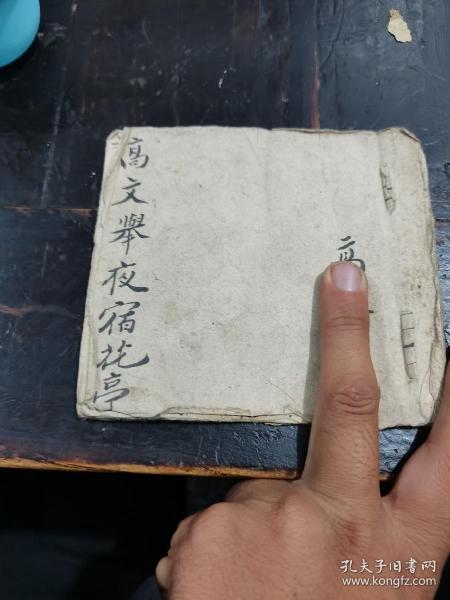 高文舉夜宿花亭
高
孔夫子旧书网
www.kongfz.com